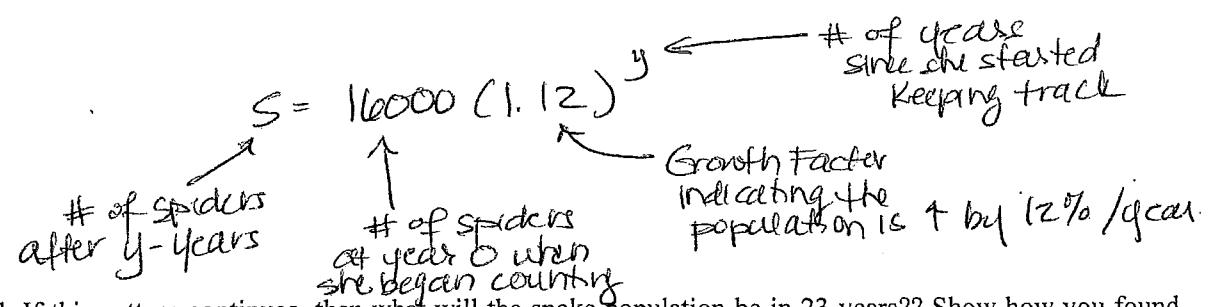 # of years
since she started
keeping track
S = 16000 (1.12)^y
Growth Factor
indicating the
population is ↑ by 12% /year.
# of spiders
after y-years
# of spiders
at year 0 when
she began counting
If this pattern continues, then what will the snake population be in 23 years?? Show how you found